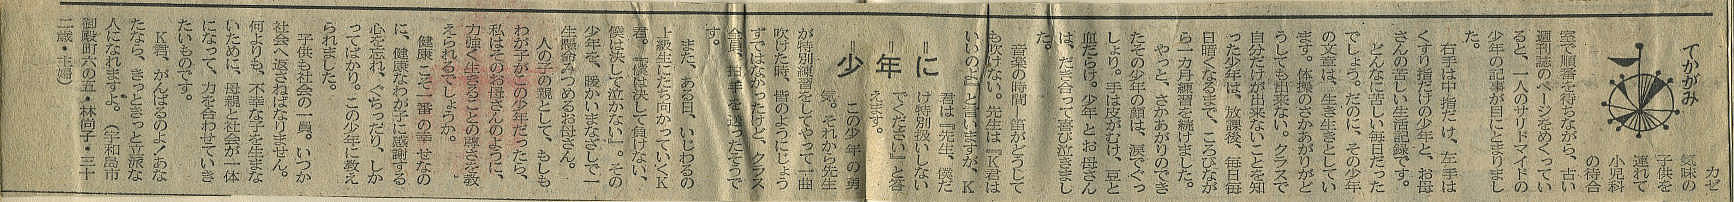 てがみ
カゼ
気味の
子供を
連れて
小児科
の待合
室で順番を待ちながら、古い
週刊誌のページをめくってい
ると、一人のサリドマイドの
少年の記事が目にとまりまし
た。
右手は中指だけ、左手は
くすり指だけの少年と、お母
さんの苦しい生活記録です。
どんなに苦しい毎日だった
でしょう。だのに、その少年
の文章は、生き生きとしてい
ます。体操のさかあがりがど
うしても出来ない。クラスで
自分だけが出来ないことを知
った少年は、放課後、毎日毎
日暗くなるまで、ころびなが
ら一カ月練習を続けました。
やっと、さかあがりのでき
たその少年の顔は、涙でぐっ
しょり。手は皮がむけ、豆と
血だらけ。少年とお母さん
は、だき合って喜び泣きまし
た。
音楽の時間、笛がどうして
も吹けない。先生は『K君は
いいのよ』と言いますが、K
君は『先生、僕だ
け特別扱いしない
でください』と答
えます。
少年に
この少年の勇
気。それから先生
が特別練習をしてやって一曲
吹けた時、皆のようにじょう
ずではなかったけど、クラス
全員、拍手を送ったそうで
す。
また、ある日、いじわるの
上級生にたち向かっていくK
君。『僕は決して負けない、
僕は決して泣かない』。その
少年を、暖かいまなざしで一
生懸命みつめるお母さん。
人の子の親として、もしも
わが子がこの少年だったら、
私はそのお母さんのように、
力強く生きることの尊さを教
えられるでしょうか。
健康、これ一番の幸せなの
に、健康なわが子に感謝する
心を忘れ、ぐちったり、しか
ってばかり。この少年に教え
られました。
子供も社会の一員。いつか
社会へ返さねばなりません。
何よりも、不幸な子を生まな
いために、母親と社会が一体
になって、力を合わせていき
たいものです。
K君、がんばるのよ！あな
たなら、きっときっと立派な
人になれますよ。（宇和島市
御殿町六の五・林尚子・三十
二歳・主婦）